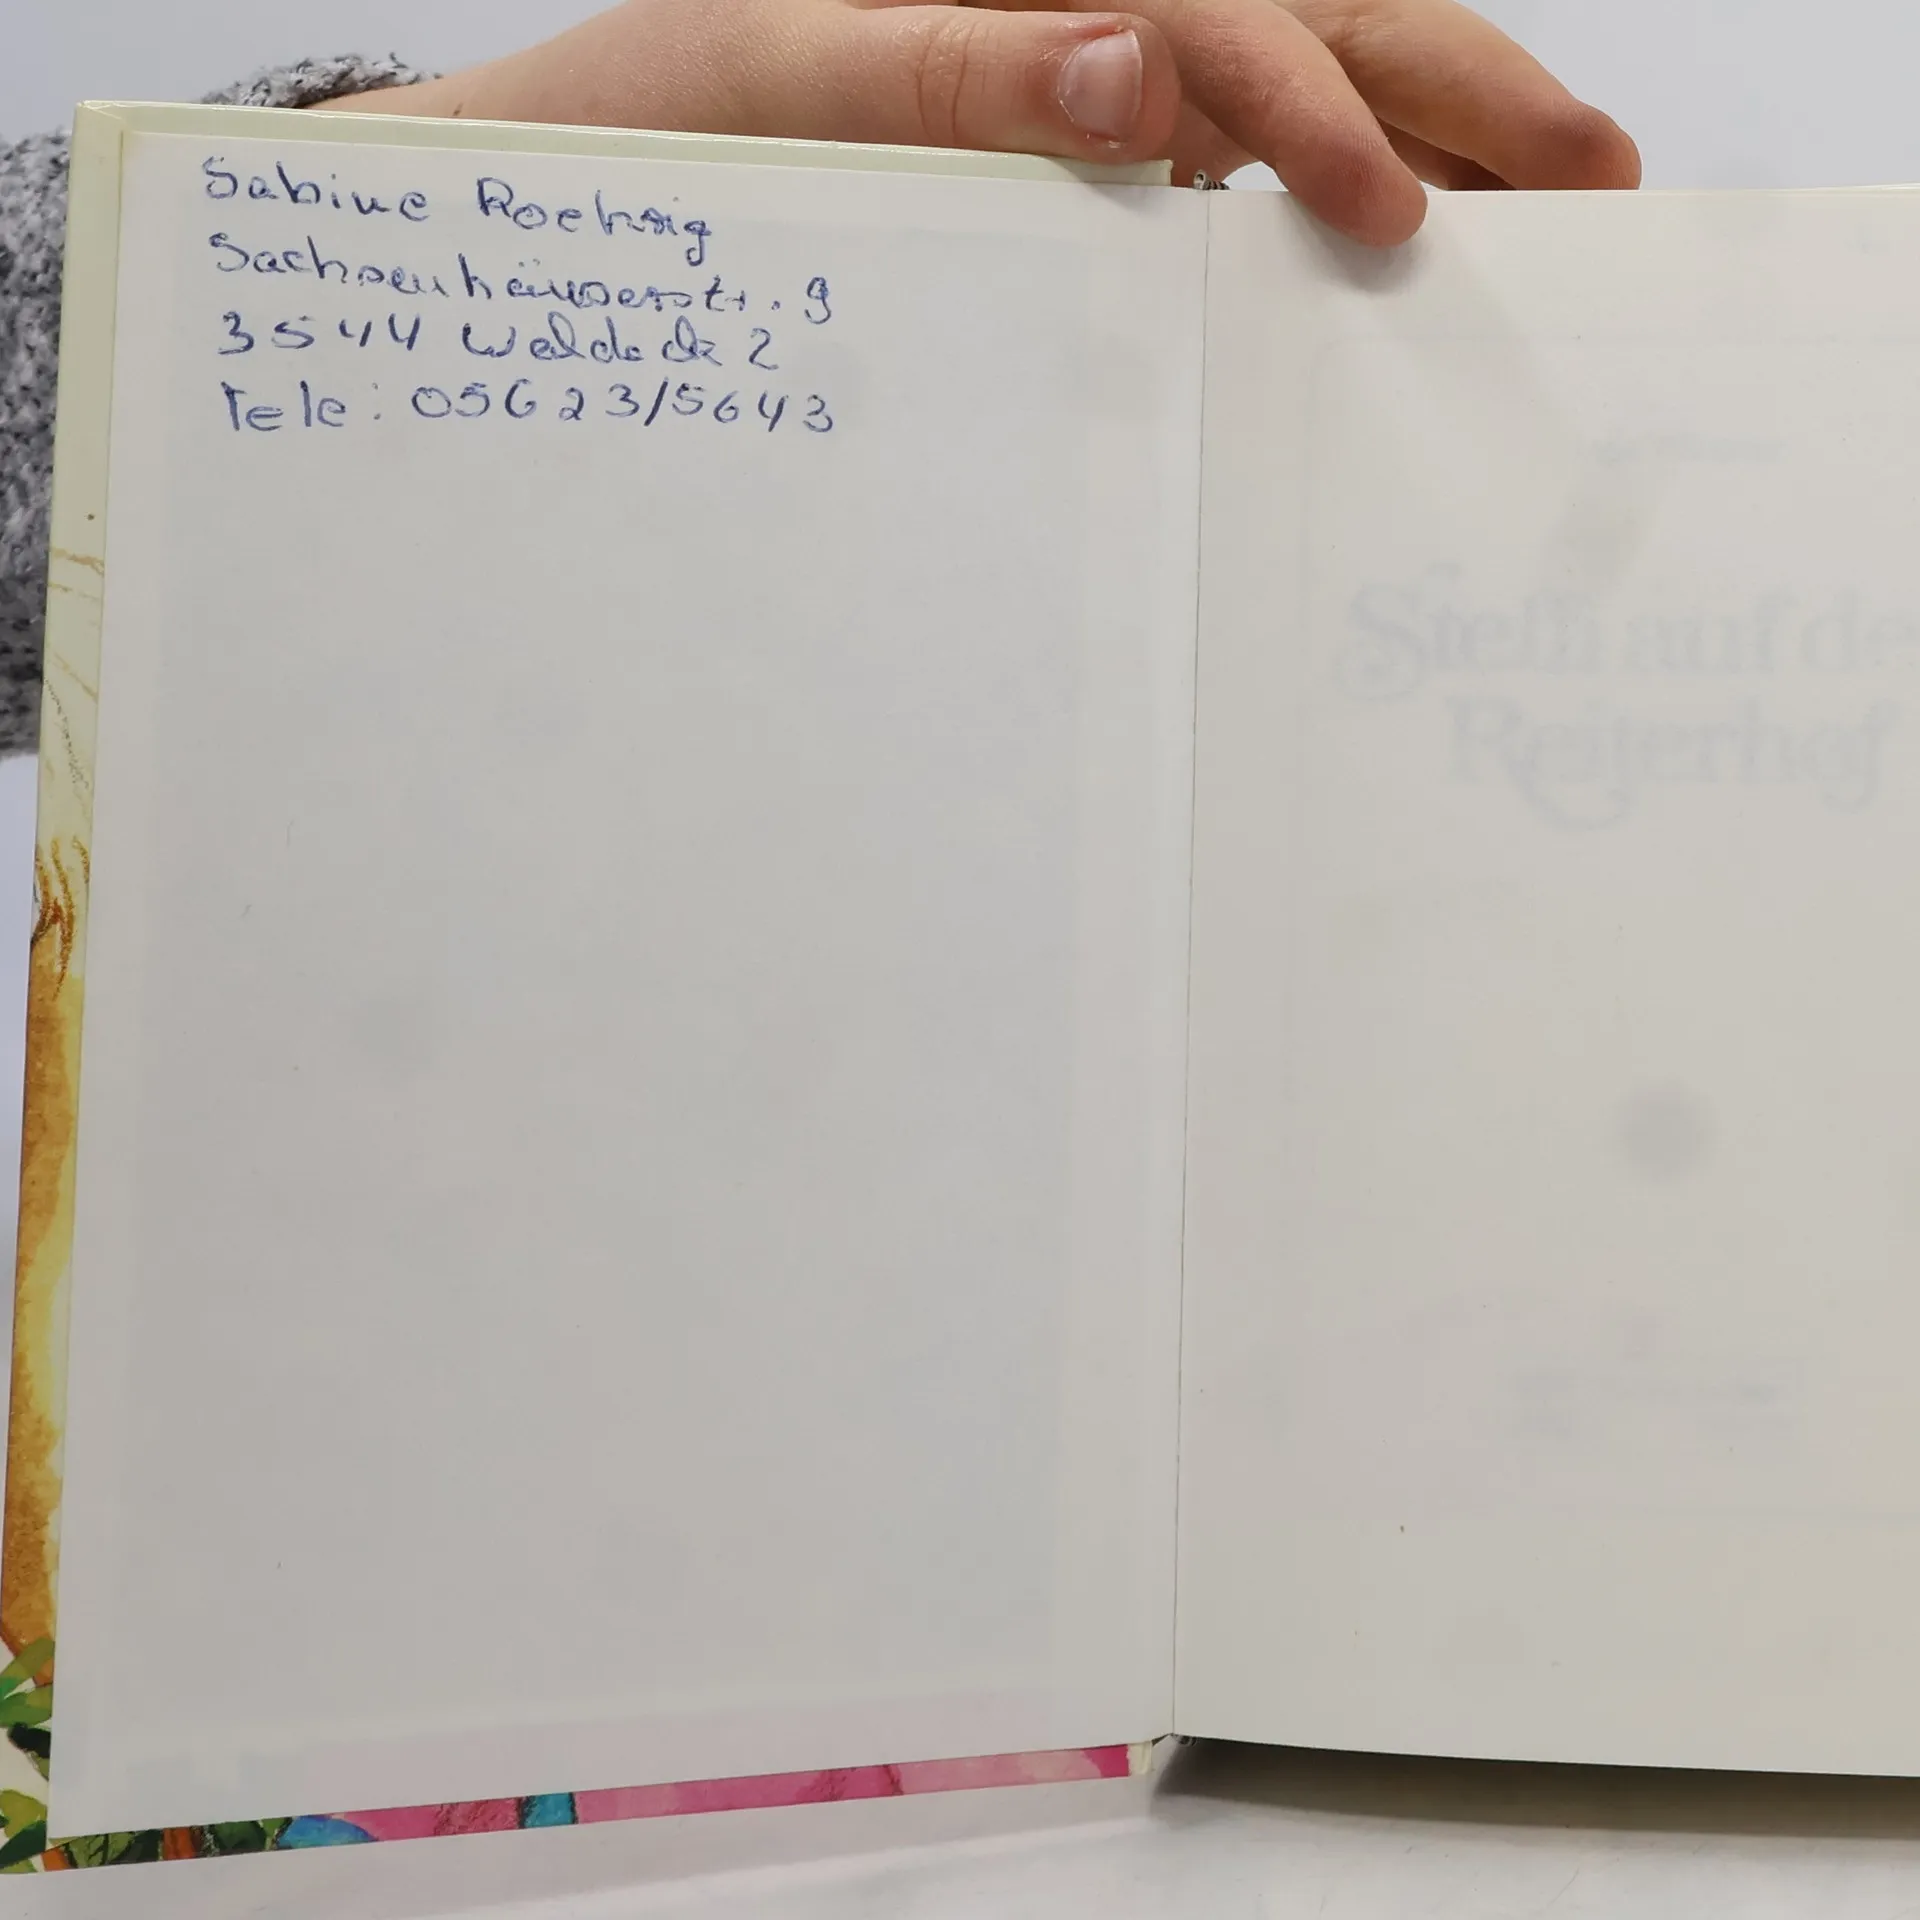 Sabine Roehrig
Sachsenhäuserstr. 9
3544 Waldeck 2
Tele: 05623/5643
Steffi auf de
Reiterhof